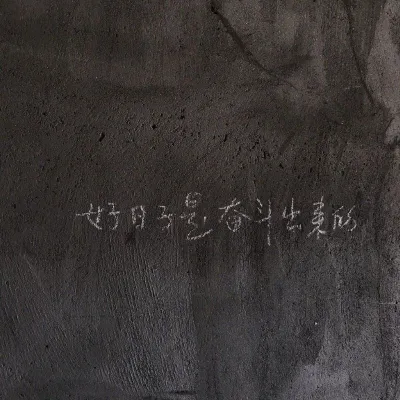 好日子是奋斗出来的